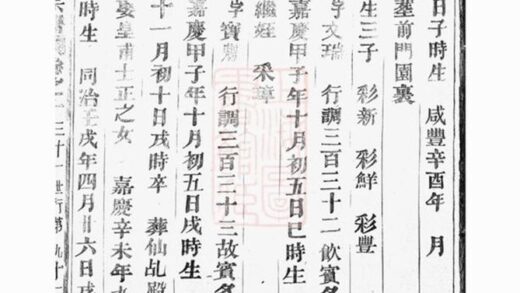 日子時生 咸豐辛酉年 月
塟前門園裏
生三子 彩新 彩鮮 彩豐
字文瑞 行調三百三十二飲賓
嘉慶甲子年十月初五日巳時生
繼姪 采章
字寶 行調三百三十三故賓
嘉慶甲子年十月初五日戌時生
十一月初十日戌時卒 葬仙乩
娶皇甫士正之女 嘉慶辛未年
時生 同治壬戌年四月廿六日戌
三十一世行第九十